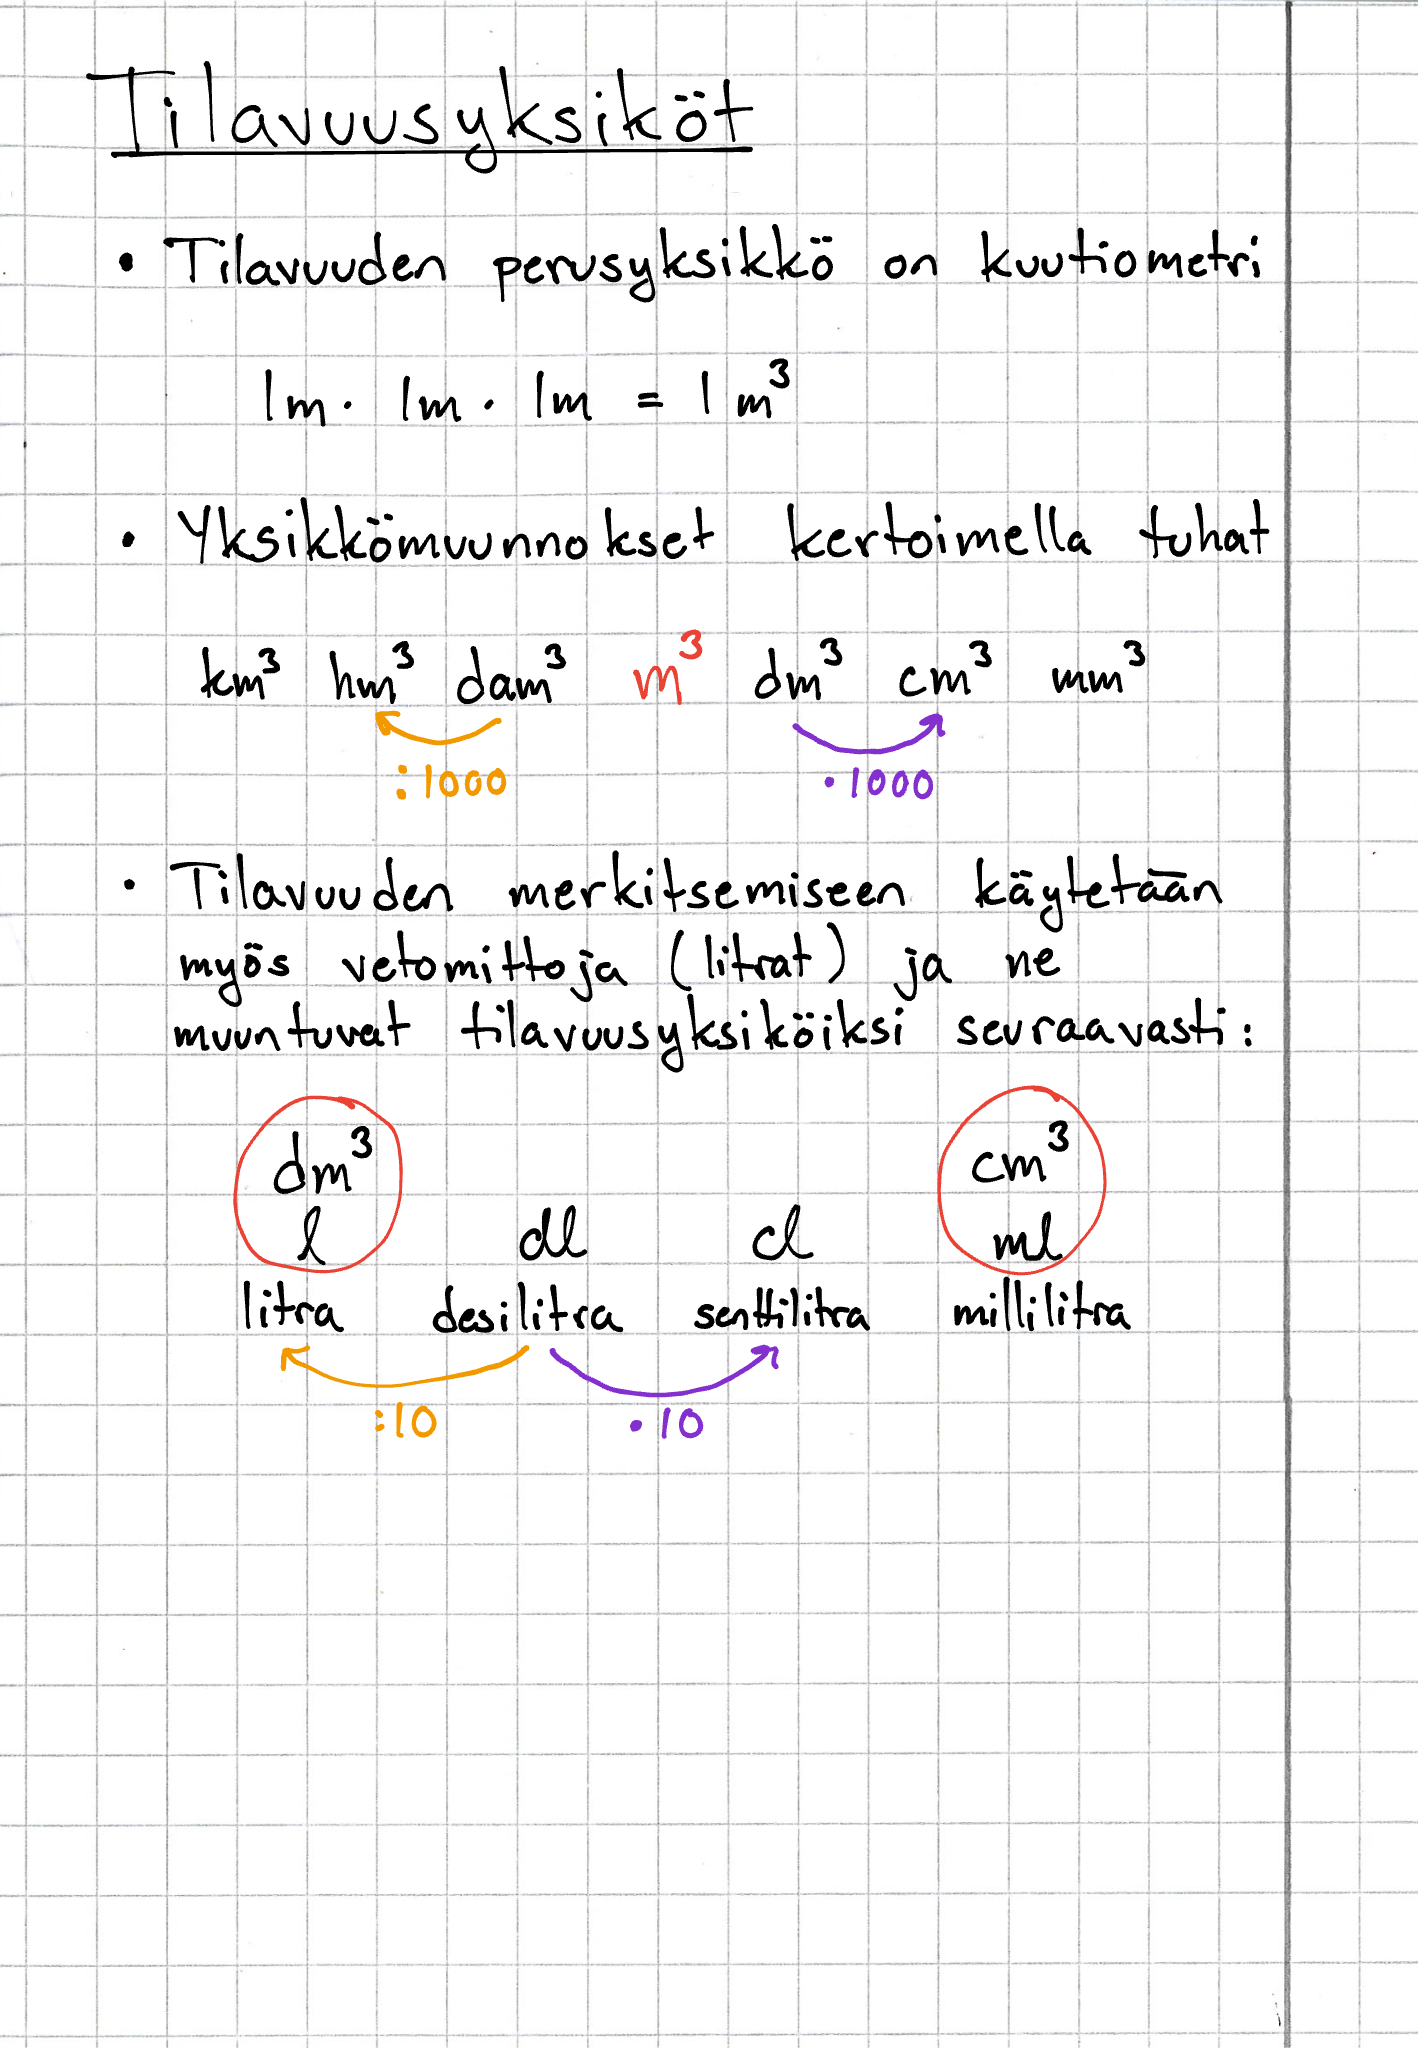 Tilavuusyksiköt
• Tilavuuden perusyksikkö on kuutiometri
1m · 1m · 1m = 1 m³
• Yksikkömuunnokset kertoimella tuhat
km³ hm³ dam³ m³ dm³ cm³ mm³
:1000 ·1000
• Tilavuuden merkitsemiseen käytetään
myös vetomittoja (litrat) ja ne
muuntuvat tilavuusyksiköiksi seuraavasti:
dm³ cm³
l dl cl ml
litra desilitra senttilitra millilitra
:10 ·10